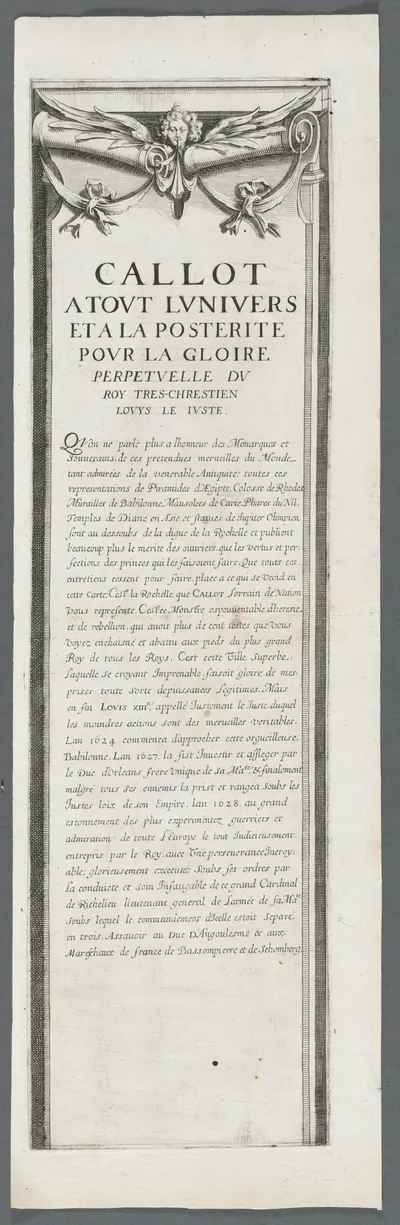 CALLOT
A TOVT LVNIVERS
ET A LA POSTERITE
POVR LA GLOIRE
PERPETVELLE DV
ROY TRES-CHRESTIEN
LOVYS LE IVSTE.
QV'on ne parle plus a lhonneur des Monarques et
Souuerains, de ces pretendues merueilles du Monde
tant admirées de la venerable Antiquité: toutes ces
representations de Piramides d'Ægipte, Colosse de Rhodes
Murailles de Babilonne, Mausolees de Carie, Phares du Nil,
Temples de Diane en Asie, et statues de Iupiter Olimpien
sont au dessoubs de la digue de la Rochelle et publient
beaucoup plus le merite des ouuriers, que les vertus et per-
fections des princes qui les faisoient faire. Que touts ces
entretiens cessent pour faire place a ce qui se vend en
cette Carte: C'est la Rochelle, que CALLOT Lorrain de Nation
vous represente. C'est ce Monstre espouuentable d'heresie
et de rebellion, qui auoit plus de cent testes que vous
voyez enchaisné et abattu aux pieds du plus grand
Roy de tous les Roys. C'est cette Ville Superbe,
Laquelle se croyant Imprenable faisoit gloire de mes-
priser toute sorte depuissances Legitimes. Mais
en fin LOVIS XIII.e appellé Iustement le Iuste, duquel
les moindres actions sont des merueilles veritables,
Lan 1624 commenca dapprocher cette orgueilleuse
Babilonne. Lan 1627. la fist Inuestir et assieger par
le Duc d'Orleans frere vnique de sa Ma.té & finalement
malgré tous ses ennemis la prist et rangea soubs les
Iustes loix de son Empire, lan 1628. au grand
estonnement des plus experimentez guerriers et
admiration de toute l'Europe le tout Iudicieusement
entrepris par le Roy, auec Vne perseuerance Incroy-
able; glorieusement executéz Soubs ses ordres par
la conduicte et soin Infatigable de ce grand Cardinal
de Richelieu lieutenant general de Larmée de sa Ma.té
Soubs lequel le commandement d'Icelle estoit separé
en trois, Assauoir au Duc D'Angoulesme & aux
Mareschaux de france de Bassompierre et de Schomberg